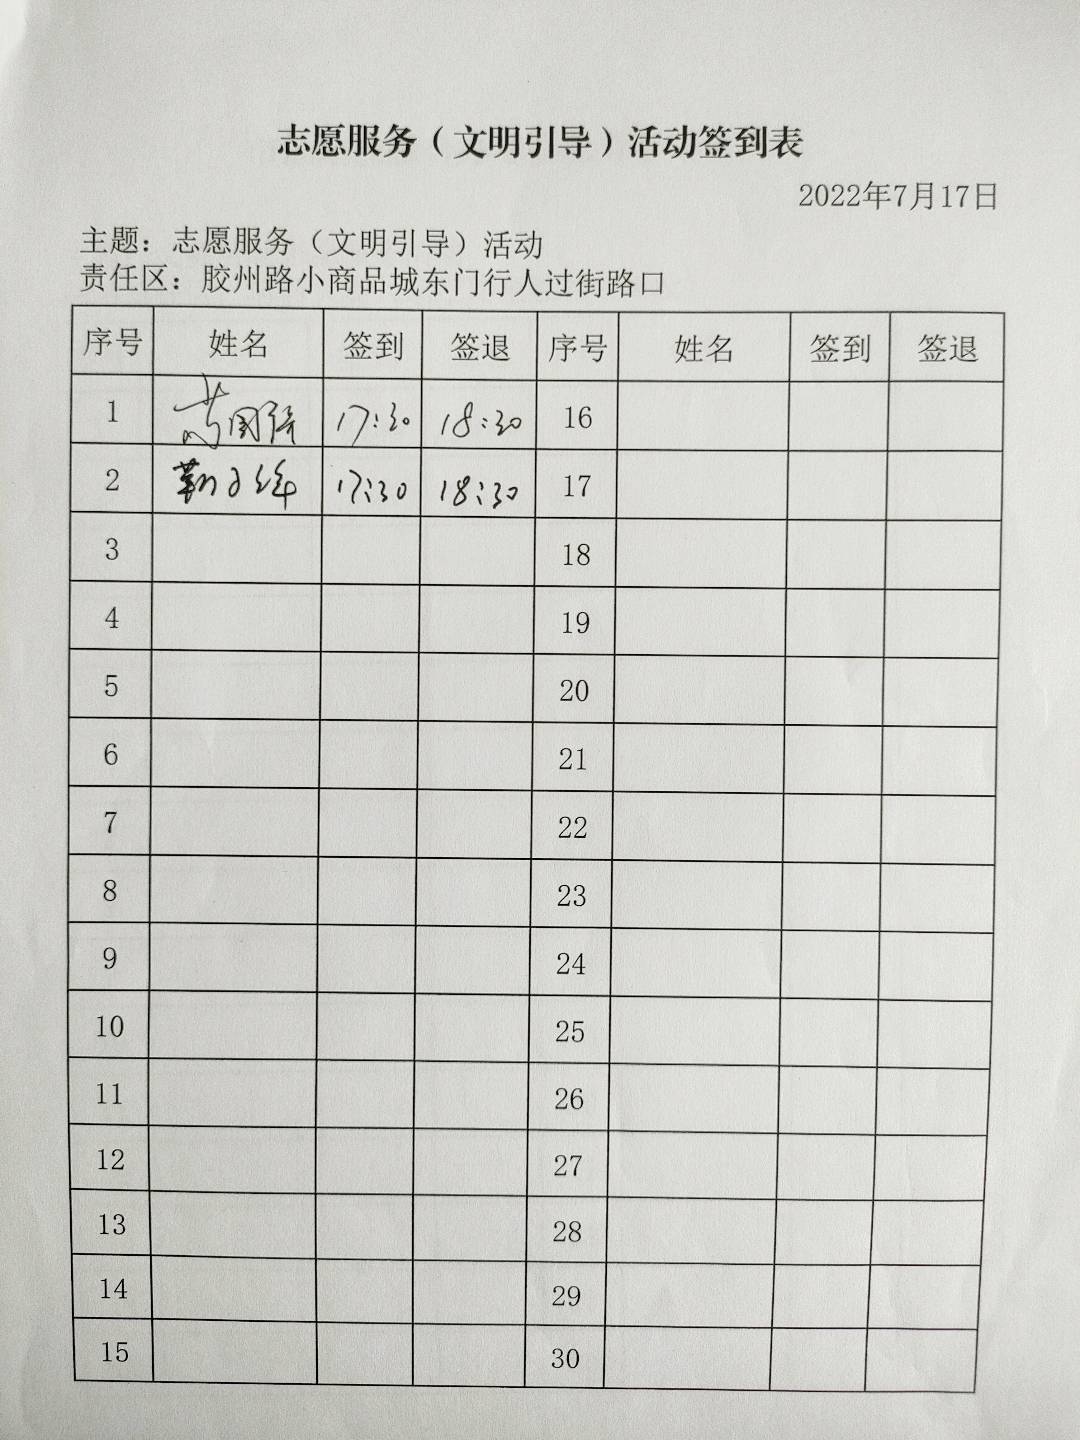 志愿服务（文明引导）活动签到表
2022年7月17日
主题：志愿服务（文明引导）活动
责任区：胶州路小商品城东门行人过街路口
序号 姓名 签到 签退 序号 姓名 签到 签退
1 17:30 18:30 16
2 17:30 18:30 17
3 18
4 19
5 20
6 21
7 22
8 23
9 24
10 25
11 26
12 27
13 28
14 29
15 30